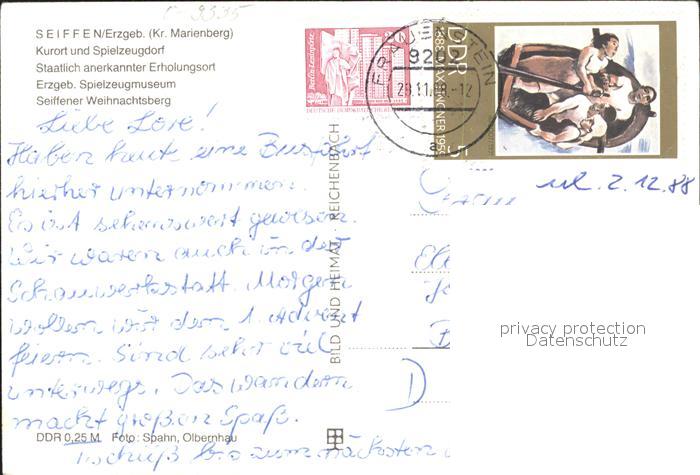 C 9335
SEIFFEN/Erzgeb. (Kr. Marienberg)
Kurort und Spielzeugdorf
Staatlich anerkannter Erholungsort
Erzgeb. Spielzeugmuseum
Seiffener Weihnachtsberg
Liebe Lore!
Haben heute eine Busfahrt
hierher unternommen.
Es ist sehenswert gewesen.
Wir waren auch in der
Schauwerkstatt. Morgen
wollen wir den 1. Advent
feiern. Sind sehr viel
unterwegs. Das wandern
macht großen Spaß.
Tschüß bis zum nächsten
DDR 0,25 M Foto: Spahn, Olbernhau
BILD UND HEIMAT · REICHENBACH
Berlin-Leninplatz
DEUTSCHE DEMOKRATISCHE
FRAUENSTEIN
9202
-12
a
DDR
5
2.12.88
D
privacy protection
Datenschutz